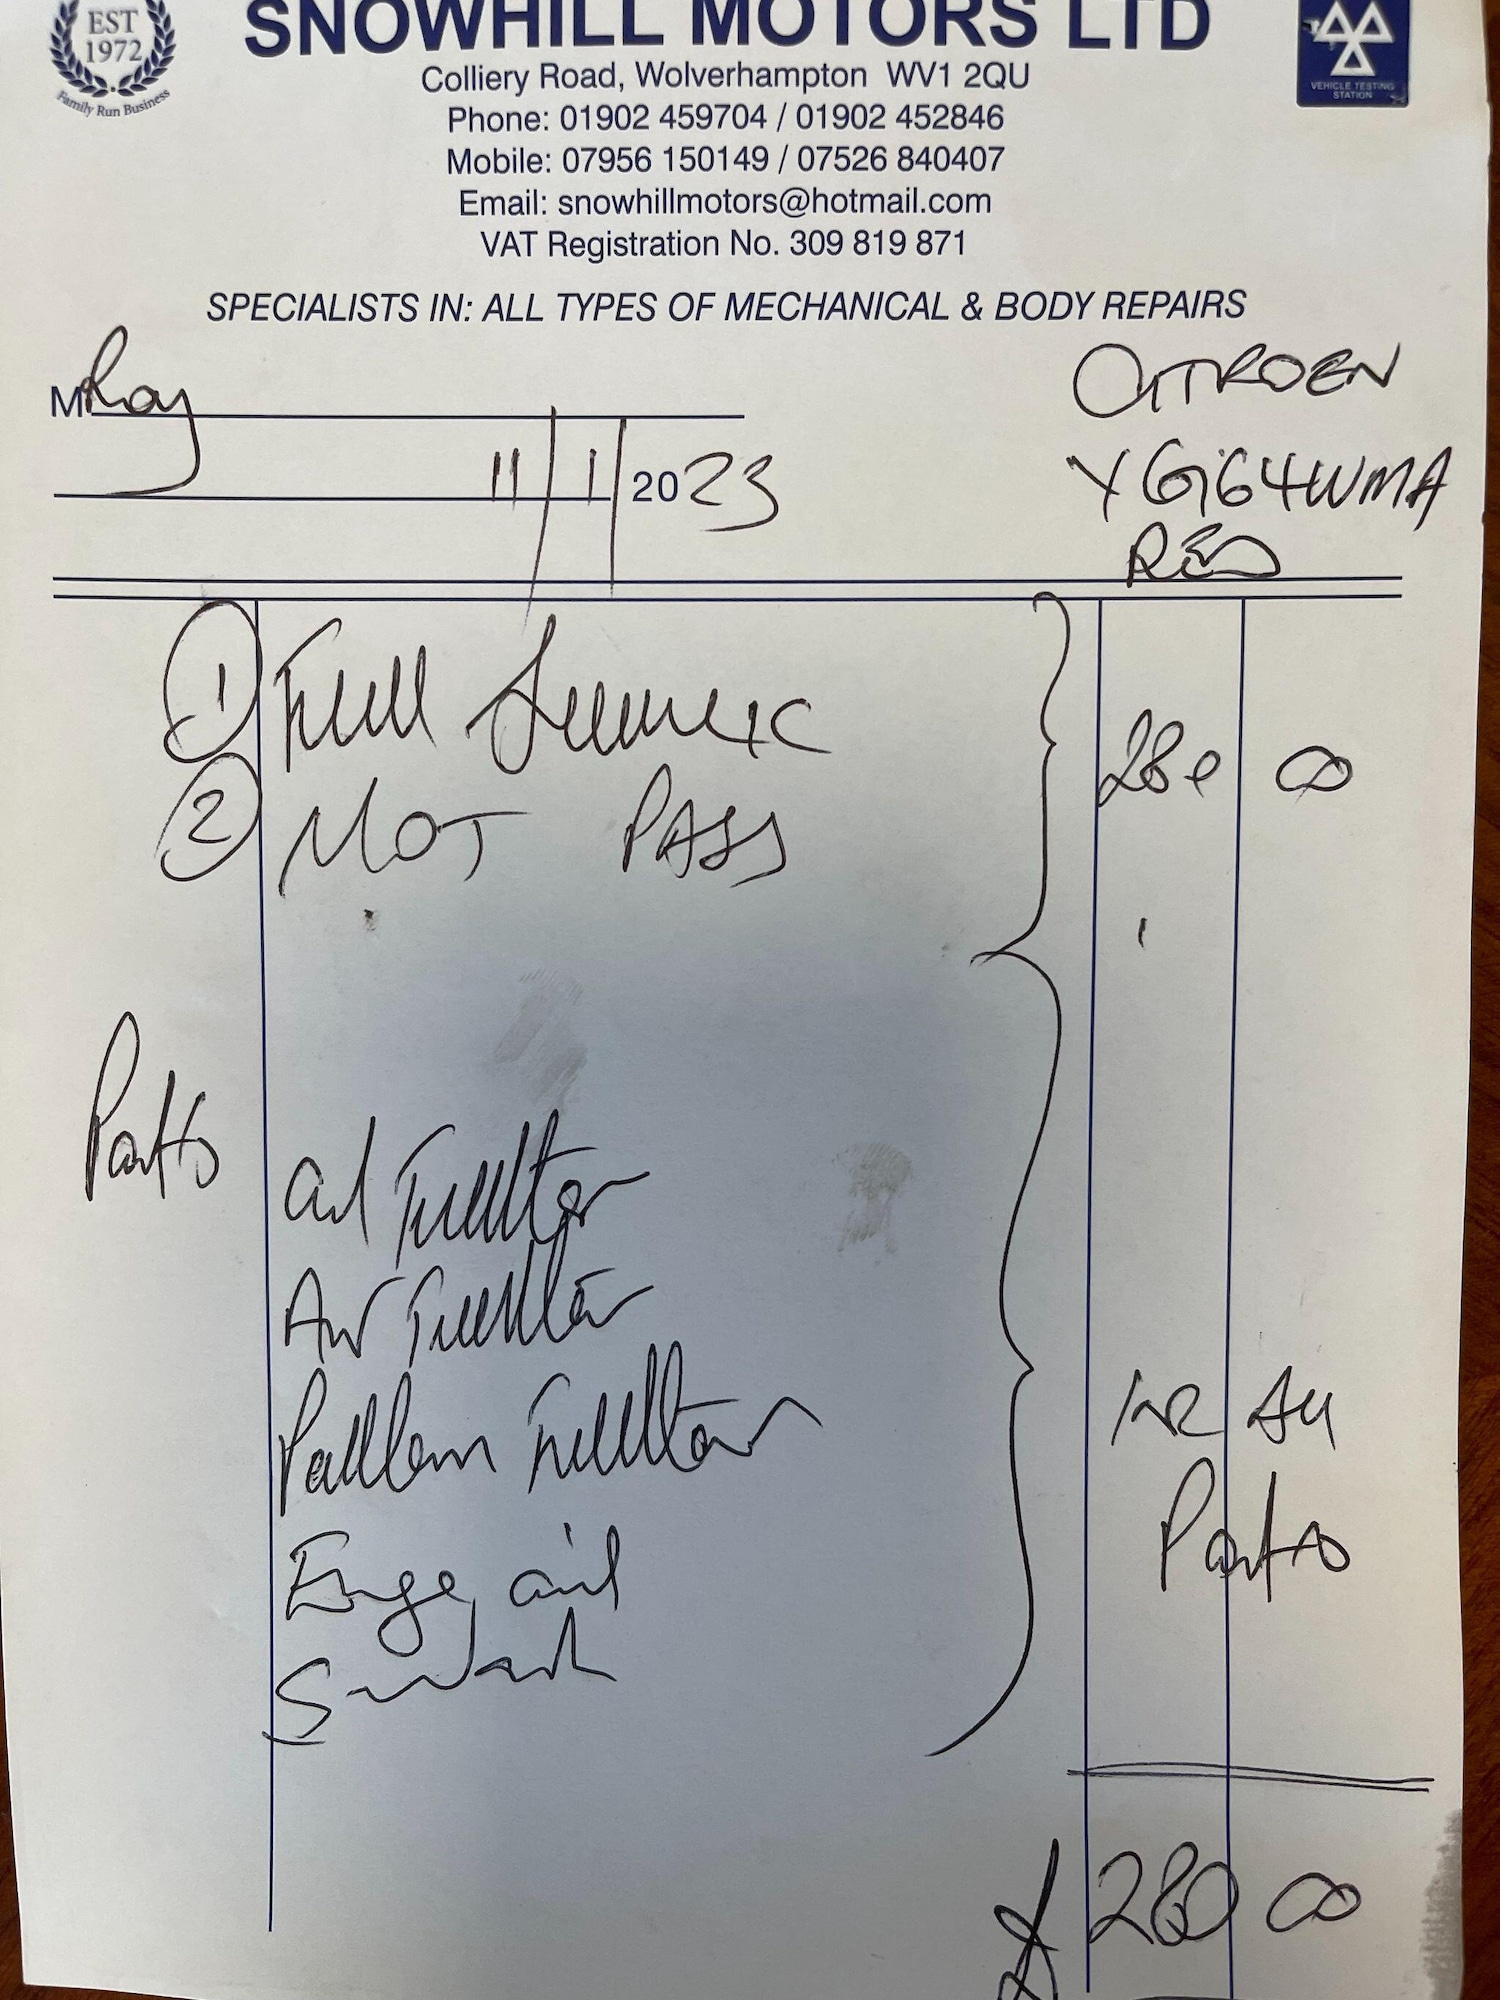 EST
1972
Family Run Business
SNOWHILL MOTORS LTD
VEHICLE TESTING
STATION
Colliery Road, Wolverhampton WV1 2QU
Phone: 01902 459704 / 01902 452846
Mobile: 07956 150149 / 07526 840407
Email: snowhillmotors@hotmail.com
VAT Registration No. 309 819 871
SPECIALISTS IN: ALL TYPES OF MECHANICAL & BODY REPAIRS
M Roy
CITROEN
11/1/2023
YG64WMA
RED
1 Full Service
280 00
2 MOT PASS
Parts
oil Fillter
Air Fillter
Pollen Fillter
Parts
oil
£ 280 00